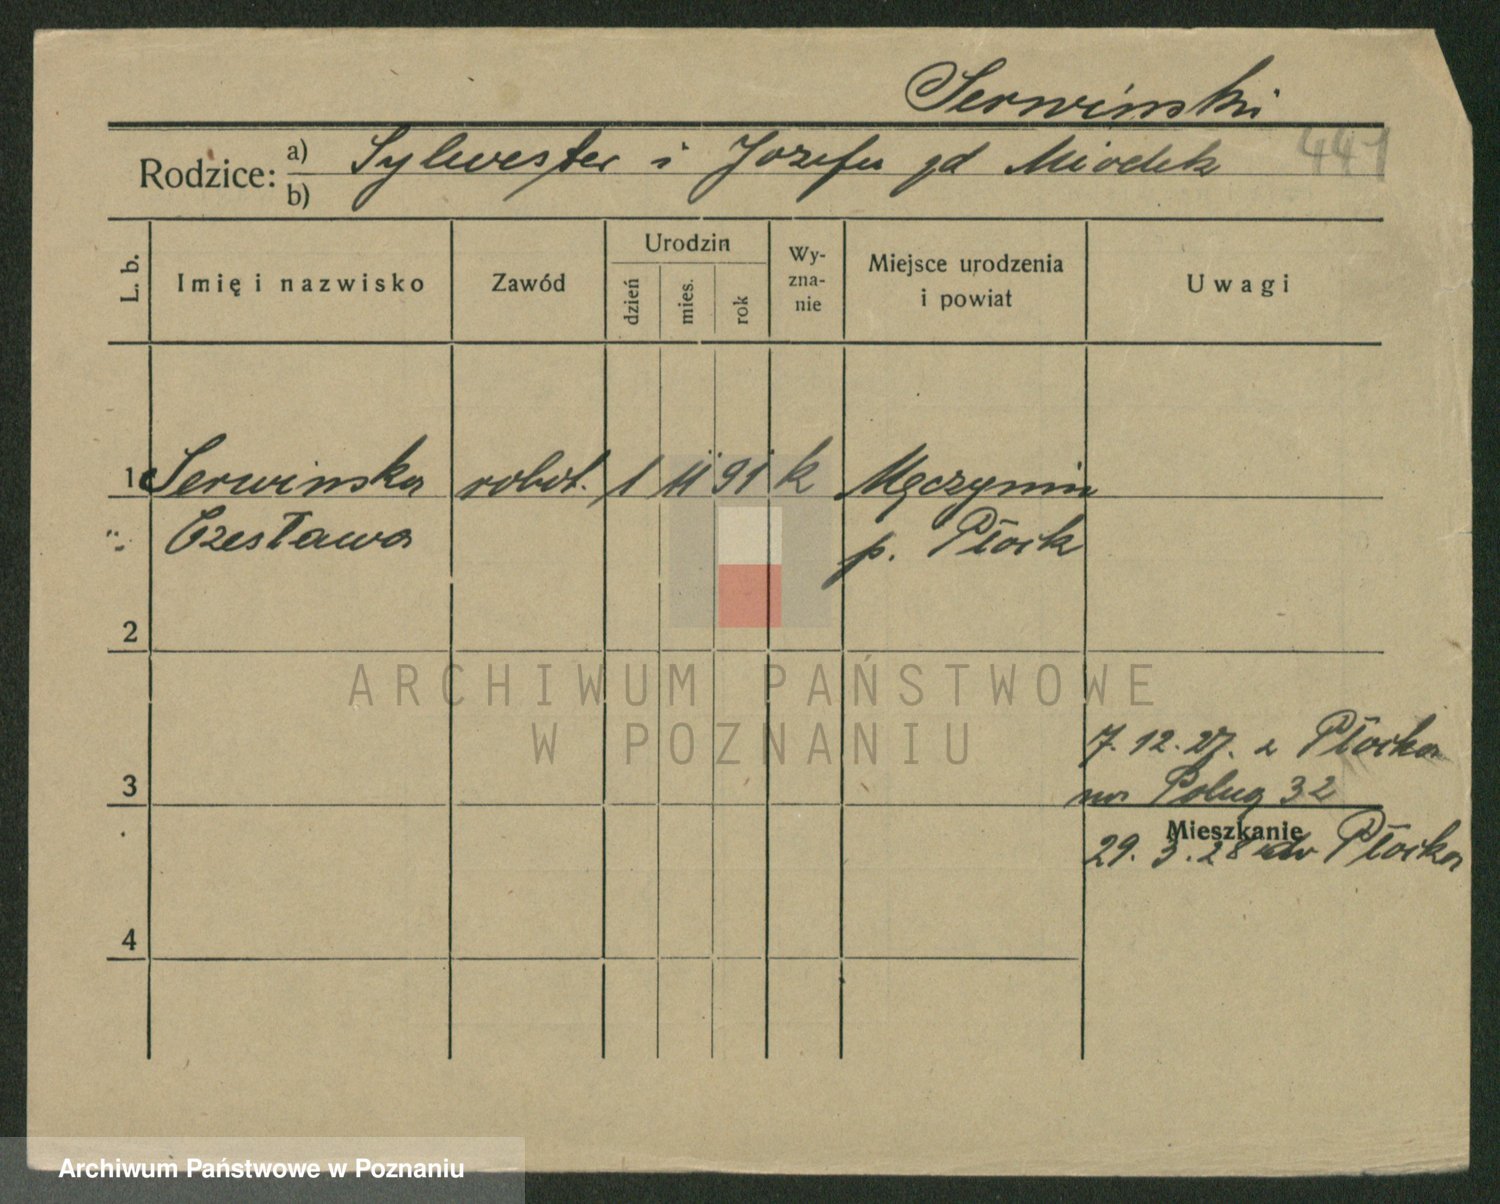 Serwiński
441
Rodzice: a) Sylwester i Jozefa jd Miodek
b)
L. b.
Imię i nazwisko
Zawód
Urodzin
dzień
mies.
rok
Wy-
zna-
nie
Miejsce urodzenia
i powiat
Uwagi
1 Serwinska robot. 1 11 91 k Męczymin
Czesława p. Płock
2
ARCHIWUM PAŃSTWOWE
W POZNANIU
7.12.27. z Płocka
3
na 32
Mieszkanie
29.3.28 do Płocka
4
Archiwum Państwowe w Poznaniu